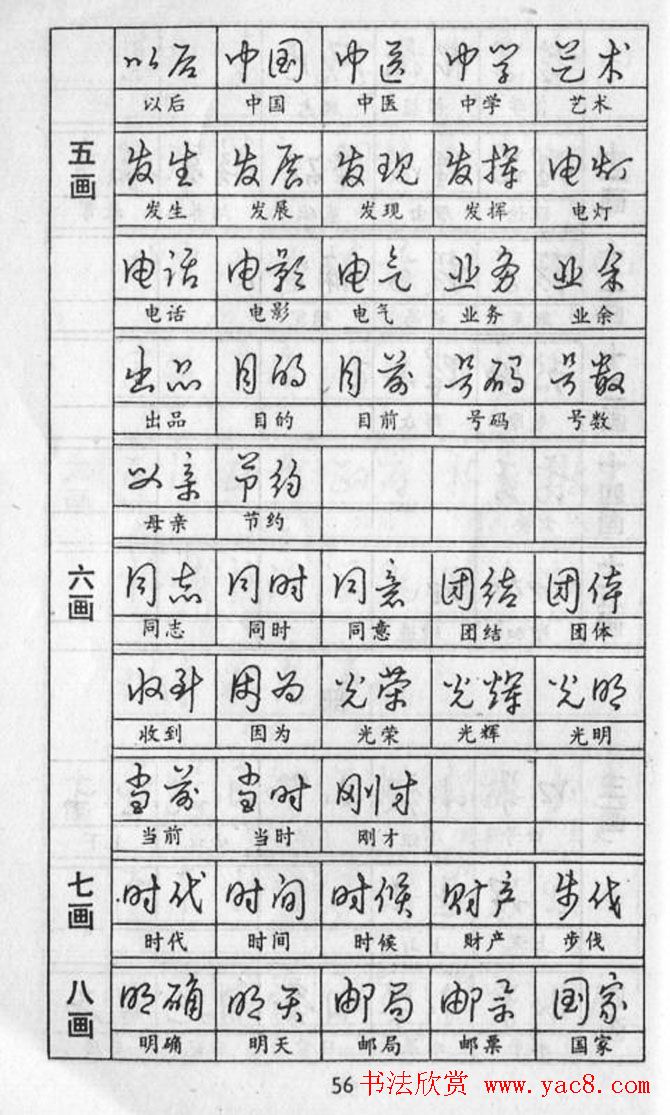 以后 中国 中医 中学 艺术
以后 中国 中医 中学 艺术
五画
发生 发展 发现 发挥 电灯
发生 发展 发现 发挥 电灯
电话 电影 电气 业务 业余
电话 电影 电气 业务 业余
出品 目的 目前 号码 号数
出品 目的 目前 号码 号数
母亲 节约
母亲 节约
六画
同志 同时 同意 团结 团体
同志 同时 同意 团结 团体
收到 因为 光荣 光辉 光明
收到 因为 光荣 光辉 光明
当前 当时 刚才
当前 当时 刚才
七画
时代 时间 时候 财产 步伐
时代 时间 时候 财产 步伐
八画
明确 明天 邮局 邮票 国家
明确 明天 邮局 邮票 国家
56 书法欣赏 www.yac8.com